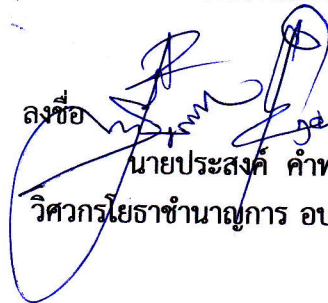 ลงชื่อ
นายประสงค์ คำ
วิศวกรโยธาชำนาญการ อบ